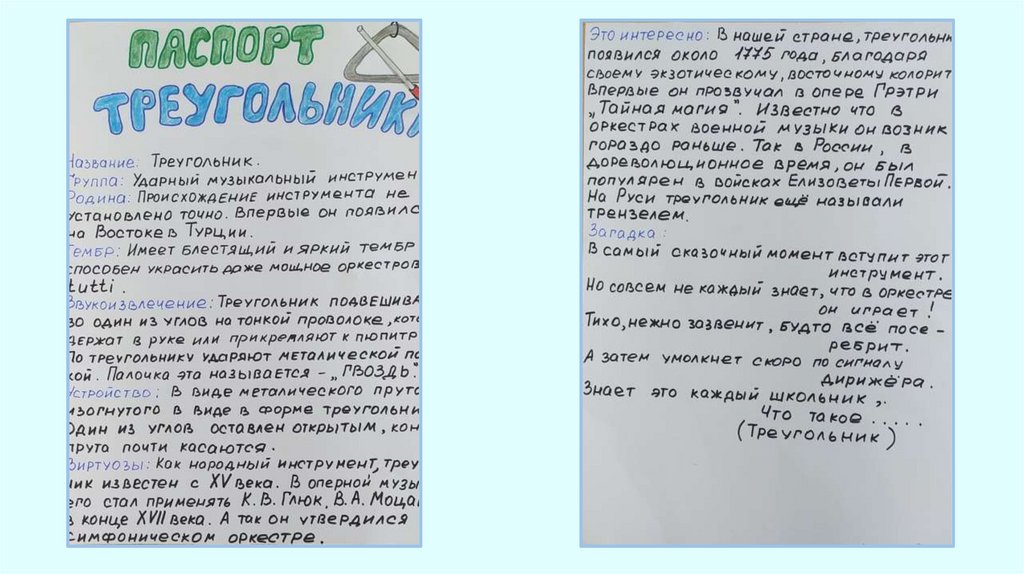 ПАСПОРТ
ТРЕУГОЛЬНИК
Название: Треугольник.
Группа: Ударный музыкальный инструмен
Родина: Происхождение инструмента не
установлено точно. Впервые он появилс
на Востоке в Турции.
Тембр: Имеет блестящий и яркий тембр
способен украсить даже мощное оркестров
tutti.
Звукоизвлечение: Треугольник подвешива
во один из углов на тонкой проволоке, кото
держат в руке или прикрепляют к пюпитр
По треугольнику ударяют металической па
кой. Палочка эта называется - „ГВОЗДЬ".
Устройство: В виде металического прута
изогнутого в виде в форме треугольни
Один из углов оставлен открытым, кон
прута почти касаются.
Виртуозы: Как народный инструмент, треу
ик известен с XV века. В оперной музы
его стал применять К.В. Глюк, В.А. Моца
в конце XVII века. А так он утвердился
симфоническом оркестре.
Это интересно: В нашей стране, треугольни
появился около 1775 года, благодаря
своему экзотическому, восточному колорит
Впервые он прозвучал в опере Грэтри
„Тайная магия". Известно что в
оркестрах военной музыки он возник
гораздо раньше. Так в России, в
дореволюционное время, он был
популярен в войсках Елизоветы Первой.
На Руси треугольник ещё называли
трензелем.
Загадка:
В самый сказочный момент вступит этот
инструмент.
Но совсем не каждый знает, что в оркестре
он играет!
Тихо, нежно зозвенит, будто всё посе -
ребрит.
А затем умолкнет скоро по сигналу
дирижёра.
Знает это каждый школьник,.
Что такое .....
(Треугольник)